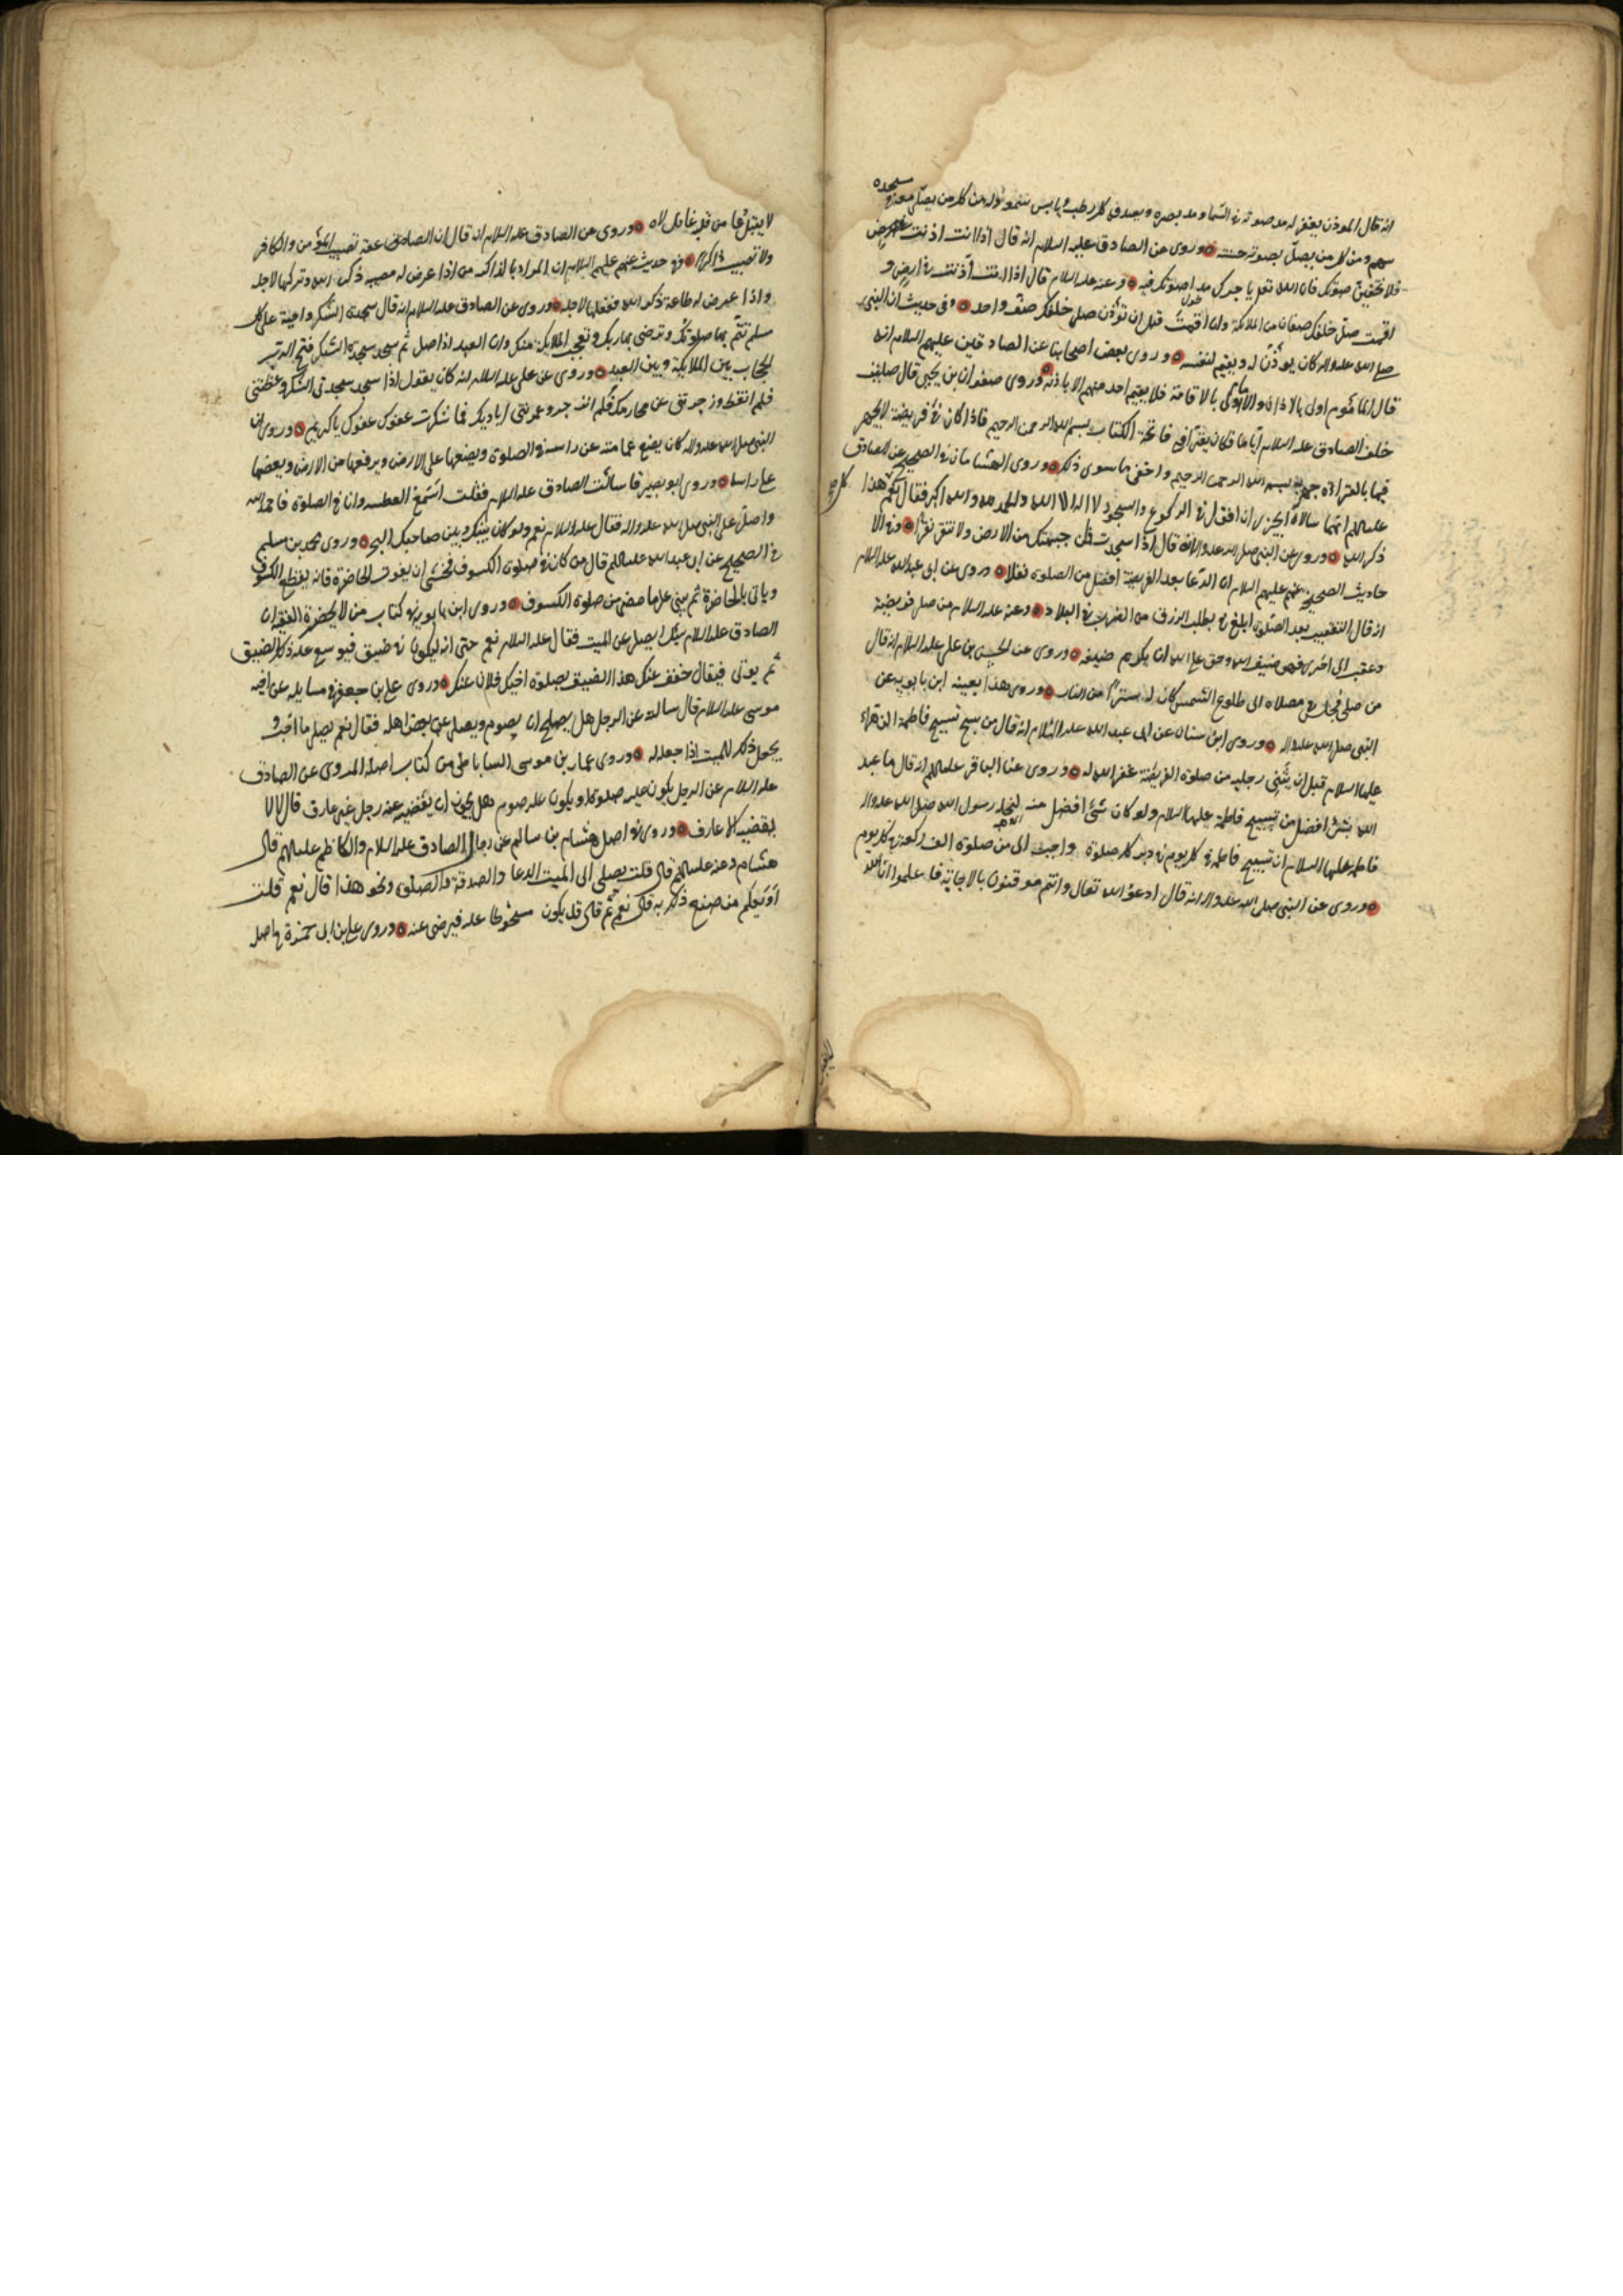 انه قال الموذن يغفر له مد صوته في السما ومد بصره ويصدقه كل رطب ويابس سمعه وله من كل من يصلي معه في مسجده
سهم ومن كل من يصلي بصوته حسنه وروى عن الصادق عليه السلام انه قال اذا اذنت
فلا تخفين صوتك فان الله تعالى ياجرك مد صوتك فيه وعنه عليه السلام قال اذا انت اذنت في ارض و
اقمت صلى خلفك صفان من الملائكة وان اقمت قبل ان توذن صلى خلفك صف واحد وفي حديث ان النبي
صلى الله عليه واله كان يوذن له ويقيم لنفسه وروى بعض اصحابنا عن الصادقين عليهم السلام انه
قال الماموم اولى بالاذان والامام اولى بالاقامة فلا يقيم احد منهم الا باذنه وروى صفوان بن يحيى قال صليت
خلف الصادق عليه السلام اياما فكان يقرأ في فاتحة الكتاب بسم الله الرحمن الرحيم فاذا كان في فريضة لا يجهر
فيها بالقراءة جهر ببسم الله الرحمن الرحيم واخفى ما سوى ذلك وروى الهشامان في الصحيح عن الصادق
عليه السلم انهما سالاه ايجزى ان اقول في الركوع والسجود لا اله الا الله والحمد لله والله اكبر فقال نعم كل هذا
ذكر الله وروى عن النبي صلى الله عليه واله انه قال اذا سجدت فمكن جبهتك من الارض ولا تنقر نقرا وفي الا
حاديث الصحيح عنهم عليهم السلام ان الدعا بعد الفريضة افضل من الصلوة نفلا وروى عن ابى عبد الله عليه السلام
انه قال التعقيب بعد الصلوة ابلغ في طلب الرزق من الضرب في البلاد وعنه عليه السلام من صلى فريضة
وعقب الى اخرى فهو ضيف الله وحق على الله ان يكرم ضيفه وروى عن الحسن بن علي عليه السلام انه قال
من صلى فجلس في مصلاه الى طلوع الشمس كان له سترا من النار وروى هذا بعينه ابن بابويه عن
النبي صلى الله عليه واله وروى ابن سنان عن ابى عبد الله عليه السلام انه قال من سبح تسبيح فاطمة الزهراء
عليها السلام قبل ان يثني رجليه من صلوة الفريضة غفر الله له وروى عن الباقر عليه السلم انه قال ما عبد
الله بشئ افضل من تسبيح فاطمة عليها السلام ولو كان شئ افضل منه لنحله رسول الله صلى الله عليه واله
فاطمه عليها السلام ان تسبيح فاطمة في كل يوم في دبر كل صلوة احب الى من صلوة الف ركعة في كل يوم
وروى عن النبي صلى الله عليه واله انه قال ادعوا الله تعالى وانتم موقنون بالاجابة فاعلموا ان الله
لا يقبل دعا من قلب غافل لاه وروى عن الصادق عليه السلام انه قال ان الصاعقة تصيب المومن والكافر
ولا تصيب ذاكرا وفي حديث عنهم عليهم السلام ان المراد بالذاكر من اذا عرض له معصيه ذكر الله وتركها لاجله
واذا عرض له طاعة ذكر الله ففعلها لاجله وروى عن الصادق عليه السلام انه قال سجدة الشكر واجبة على كل
مسلم تتم بها صلوتك وترضى بها ربك وتعجب الملايكة منك وان العبد اذا صلى ثم سجد سجدة الشكر فتح الرب
الحجاب بين الملايكة وبين العبد وروى عن علي عليه السلام انه كان يقول اذا سجد سجدتي الشكر وعظتني
فلم اتعظ وزجرتني عن محارمك فلم انزجر وعمرتني اياديك فما شكرت عفوك عفوك يا كريم وروى ان
النبي صلى الله عليه واله كان يضع عمامته عن راسه في الصلوة ويضعها على الارض ويرفعها من الارض ويضعها
على راسه وروى ابو بصير قال سالت الصادق عليه السلام فقلت اسمع العطسه وانا في الصلوة فاحمد الله
واصلي على النبي صلى الله عليه واله فقال عليه السلام نعم ولو كان بينك وبين صاحبك البحر وروى محمد بن مسلم
في الصحيح عن ابى عبد الله عليه السلم قال من كان في صلوة الكسوف فخشى ان يفوت الحاضرة فانه يقطع الكسوف
وياتى بالحاضرة ثم يبني على ما مضى من صلوة الكسوف وروى ابن بابويه في كتاب من لا يحضره الفقيه ان
الصادق عليه السلام سئل ايصلى عن الميت فقال عليه السلام نعم حتى انه ليكون في ضيق فيوسع عليه ذلك الضيق
ثم يوتى فيقال خفف عنك هذا الضيق بصلوة اخيك فلان عنك وروى علي بن جعفر في مسايله عن اخيه
موسى عليه السلام قال سالته عن الرجل هل يصلح ان يصوم ويصلى عن بعض اهله فقال نعم يصلي ما احب و
يجعل ذلك للميت اذا جعله له وروى عمار بن موسى الساباطي من كتاب اصله المروى عن الصادق
عليه السلام عن الرجل يكون عليه صلوة او يكون عليه صوم وهل يجوز ان يقضيه عنه رجل غير عارف قال لا لا
يقضيه الا عارف وروى في اصل هشام بن سالم عن رجال الصادق عليه السلام والكاظم عليه السلم قال
هشام وعنه عليه السلم قال قلت يصل الى الميت الدعا والصدقة والصلوة ونحو هذا قال نعم قلت
اويعلم من صنع ذلك به قال نعم ثم قال قد يكون مسخوطا عليه فيرضى عنه وروى علي بن ابى حمزة في اصله